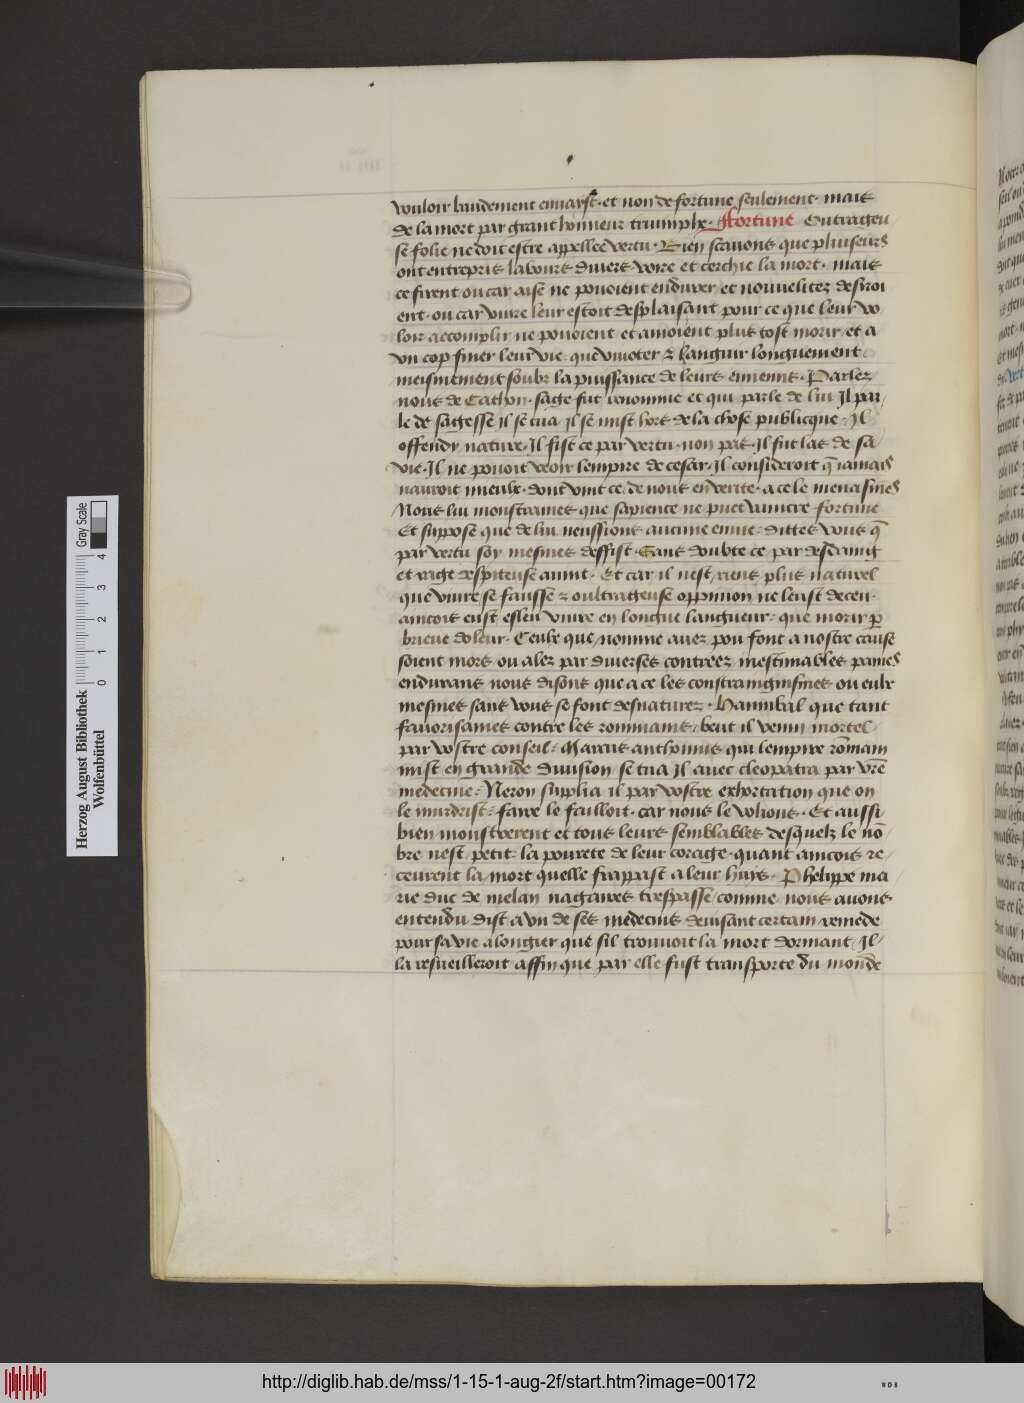 vouloir baudement envaÿst · et non de fortune seulement · mais
de la mort par grant honneur triumphe · Ffortune Oultrageu
se folie ne doit estre appellee vertu · Bien scavons que pluiseurs
ont entrepris labours divers voire et cerchie la mort · mais
ce firent ou car aise ne pouoient endurer et nouvelitez desiroi
ent · ou car vivre leur estoit desplaisant pour ce que leur vo
loir accomplir ne pouoient et amoient plus tost morir et a
un cop finer leur vie que vivoter z languir longuement
meismement soubz la puissance de leurs ennemis · Parlez
nous de Cathon · sage fut renomme et qui parle de lui Il par
le de sagesse il se tua il se mist hors de la chose publicque · Il
offendy nature · Il fist ce par vertu non pas · Il fut las de sa
vie · Il ne pouoit veoir lempire de cesar · Il consideroit q̄ iamais
nauroit mieulx · dont vint ce de nous en verite · a ce le menasmes
Nous lui monstrames que sapience ne puet vaincre fortune
Et suppose que de lui neussions aucune envie · dittes vous q̄
par vertu soy mesmes deffist · Sans doubte ce par desdaing
et rage despiteuse avint · Et car il nest riens plus naturel
que vivre se fausse z oultrageuse oppinion ne leust deceu ·
aincois eust esleu vivre en longue langueur · que morir p̄
brieve doleur · Ceulx que nomme avez pou font a nostre cause
soient mors ou alez par diverses contrees inestimables paines
endurans nous disons que a ce les constraingnismes ou eulx
mesmes sans vous se sont desnaturez · Hannibal que tant
favorisames contre les rommains beut il venin mortel
par vostre conseil · Marcus anthonius qui lempire rōmain
mist en grande division se tua il avec cleopatra par vr̄e
medecine · Neron supplia il par vostre exhortation que on
le murdrist · faire le failloit car nous le volions · Et aussi
bien monstrerent et tous leurs semblables desquelz le nō
bre nest petit la povrete de leur corage · quant aincois re
ceurent la mort quelle frappast a leur huys · Phelippe ma
rie duc de melan nagaires trespasse comme nous avons
entendu dist a un de ses medecins devisant certain remede
pour sa vie alongier que sil trouvoit la mort dormant Il
la resveilleroit affin que par elle fust transporte du monde
Herzog August Bibliothek
Wolfenbüttel
0 1 2 3 4
Gray Scale
http://diglib.hab.de/mss/1-15-1-aug-2f/start.htm?image=00172
WDB